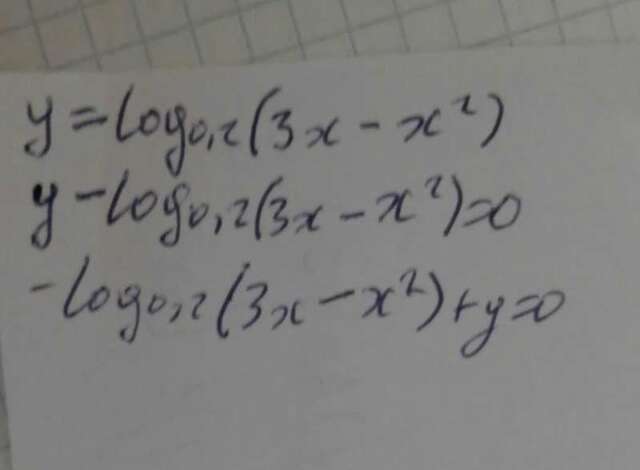 y = log₀,₂(3x - x²)
y - log₀,₂(3x - x²) = 0
- log₀,₂(3x - x²) + y = 0